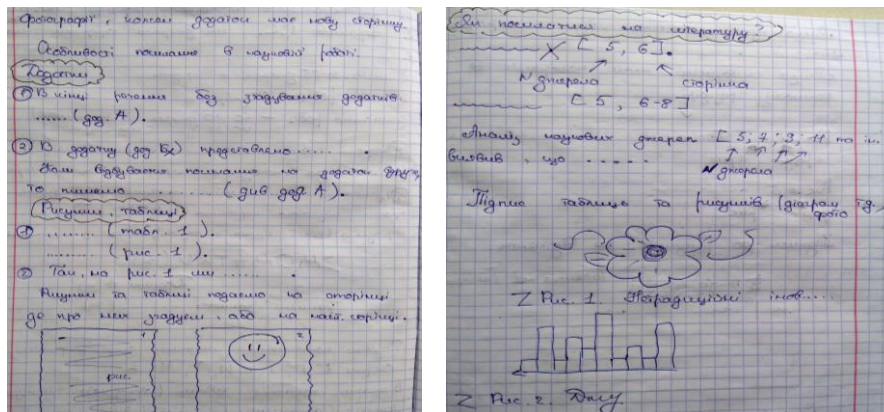 фотографії, кожен додаток має нову сторінку.
Особливості посилання в науковій роботі.
Додатки
① В кінці речення без згадування додатків
...... (дод. А).
② В додатку (дод Б) представлено ...... .
Коли відбувається посилання на додаток
то пишемо ....... (див. дод А).
Рисунки, таблиці
① ........ (табл. 1).
........ (рис. 1).
② Так, на рис. 1 ми ...... .
Рисунки та таблиці подаємо на сторінці
де про них згадуєм, або на наст. сорінці.
1
рис.
2
Як посилатися на літературу?
[5, 6].
N джерела
сторінка
[5, 6-8]
Аналіз наукових джерел [5; 7; 9; 11 та ін.
виявив, що .....
N джерела
Підпис таблиць та рисунків (діаграм т.д.,
фото
Рис. 1. Нетрадиційні інов....
Рис. 2.